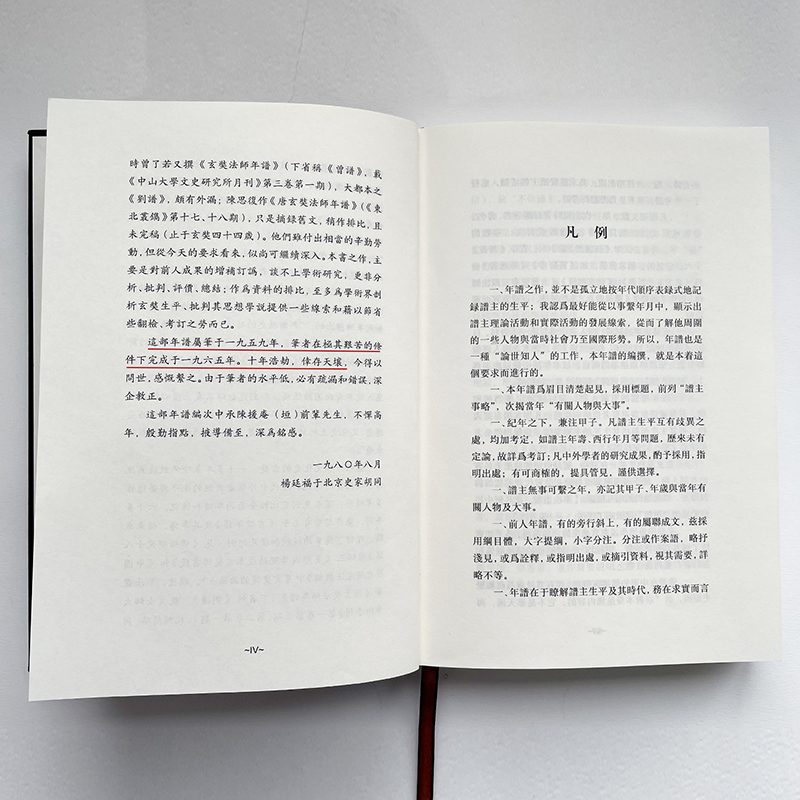 時曾了若又撰《玄奘法師年譜》（下省稱《曾譜》，載
《中山大學文史研究所月刊》第三卷第一期），大都本之
《劉譜》，頗有外漏；陳思復作《唐玄奘法師年譜》（《東
北叢鐫》第十七、十八期），只是摘録舊文，稍作排比，且
未完稿（止于玄奘四十四歲）。他們雖付出相當的辛勤勞
動，但從今天的要求看來，似尚可繼續深入。本書之作，主
要是對前人成果的增補訂譌，談不上學術研究，更非分
析、批判、評價、總結；作爲資料的排比，至多爲學術界剖
析玄奘生平、批判其思想學説提供一些綫索和藉以節省
些翻檢、考訂之勞而已。
這部年譜屬筆于一九五九年，筆者在極其艱苦的條
件下完成于一九六五年。十年浩劫，倖存天壤，今得以
問世，感慨繫之。由于筆者的水平低，必有疏漏和錯誤，深
企教正。
這部年譜編次中承陳援庵（垣）前輩先生，不憚高
年，殷勤指點，掖導備至，深爲銘感。
一九八〇年八月
楊廷福于北京史家胡同
~IV~
凡 例
一、年譜之作，並不是孤立地按年代順序表録式地記
録譜主的生平；我認爲最好能從以事繫年月中，顯示出
譜主理論活動和實際活動的發展綫索，從而了解他周圍
的一些人物與當時社會乃至國際形勢。所以，年譜也是
一種“論世知人”的工作，本年譜的編撰，就是本着這
個要求而進行的。
一、本年譜爲眉目清楚起見，採用標題，前列“譜主
事略”，次揭當年“有關人物與大事”。
一、紀年之下，兼注甲子。凡譜主生平互有歧異之
處，均加考定，如譜主年壽、西行年月等問題，歷來未有
定論，故詳爲考訂；凡中外學者的研究成果，酌予採用，指
明出處；有可商榷的，提具管見，謹供選擇。
一、譜主無事可繫之年，亦記其甲子、年歲與當年有
關人物及大事。
一、前人年譜，有的旁行斜上，有的屬聯成文，茲採
用綱目體，大字提綱，小字分注。分注或作案語，略抒
淺見，或爲詮釋，或指明出處，或摘引資料，視其需要，詳
略不等。
一、年譜在于瞭解譜主生平及其時代，務在求實而言